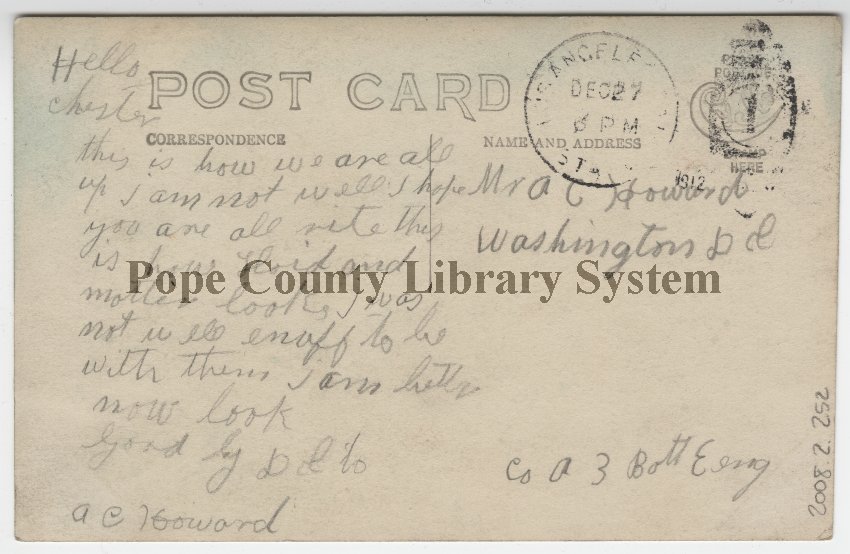 Hello
Chester
POST CARD
CORRESPONDENCE
NAME AND ADDRESS
LOS ANGELES
DEC 27
6 PM
STA
1912
HERE
this is how we are all
up I am not well I hope
you are all rite this
is how and
mother looks I was
not well enuff to be
with them I am better
now look
Good by D C to
A C Howard
Mr A C Howard
Washington D C
Co A 3 Batt Eeng
Pope County Library System
2008.2.252